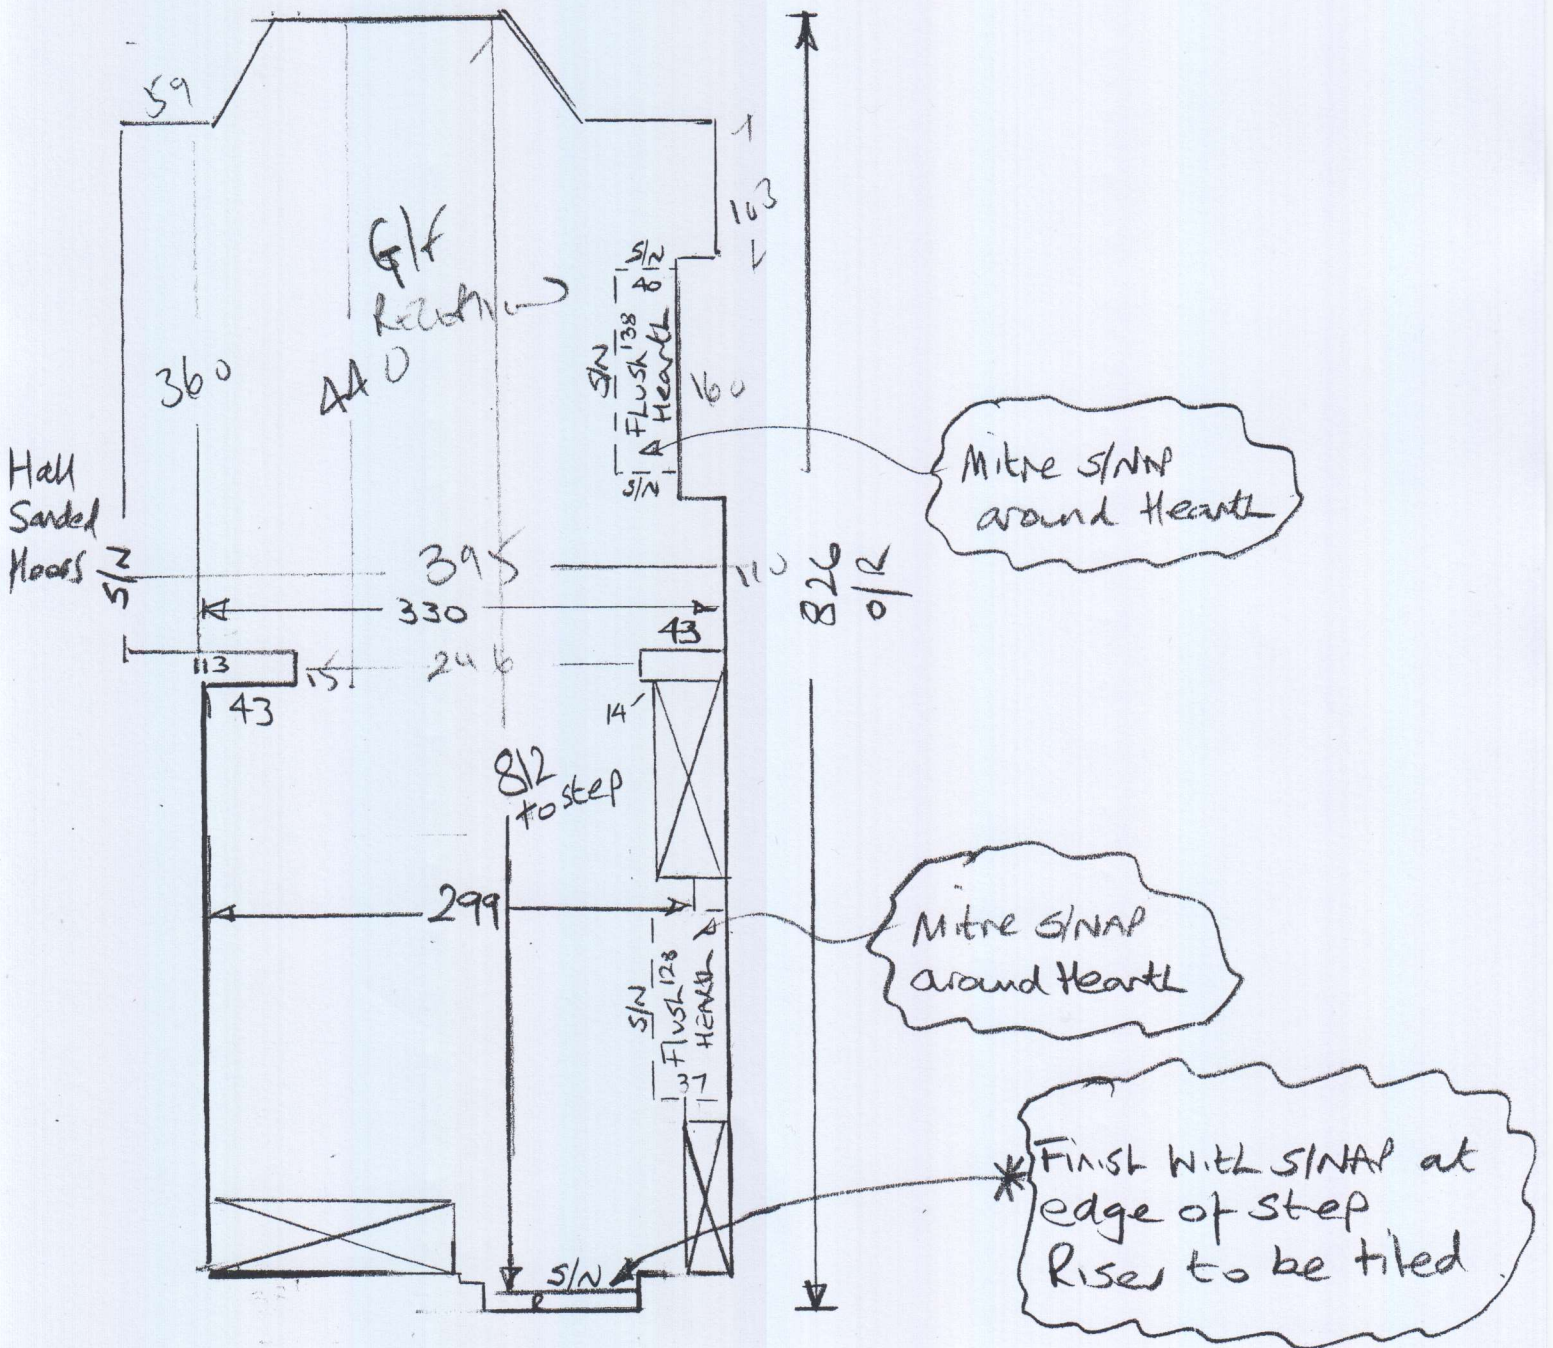 59
103
G/F
Reception
S/N
40
138
S/N
Flush
Hearth
160
S/N
360
440
Mitre S/NAP
around Hearth
Hall
Sanded
Floors
S/N
395
110
826
O/R
330
43
113
15
246
43
14
812
to step
299
Mitre S/NAP
around Hearth
S/N
Flush
128
HEARTH
37
Finish with S/NAP at
edge of step
Riser to be tiled
S/N
R